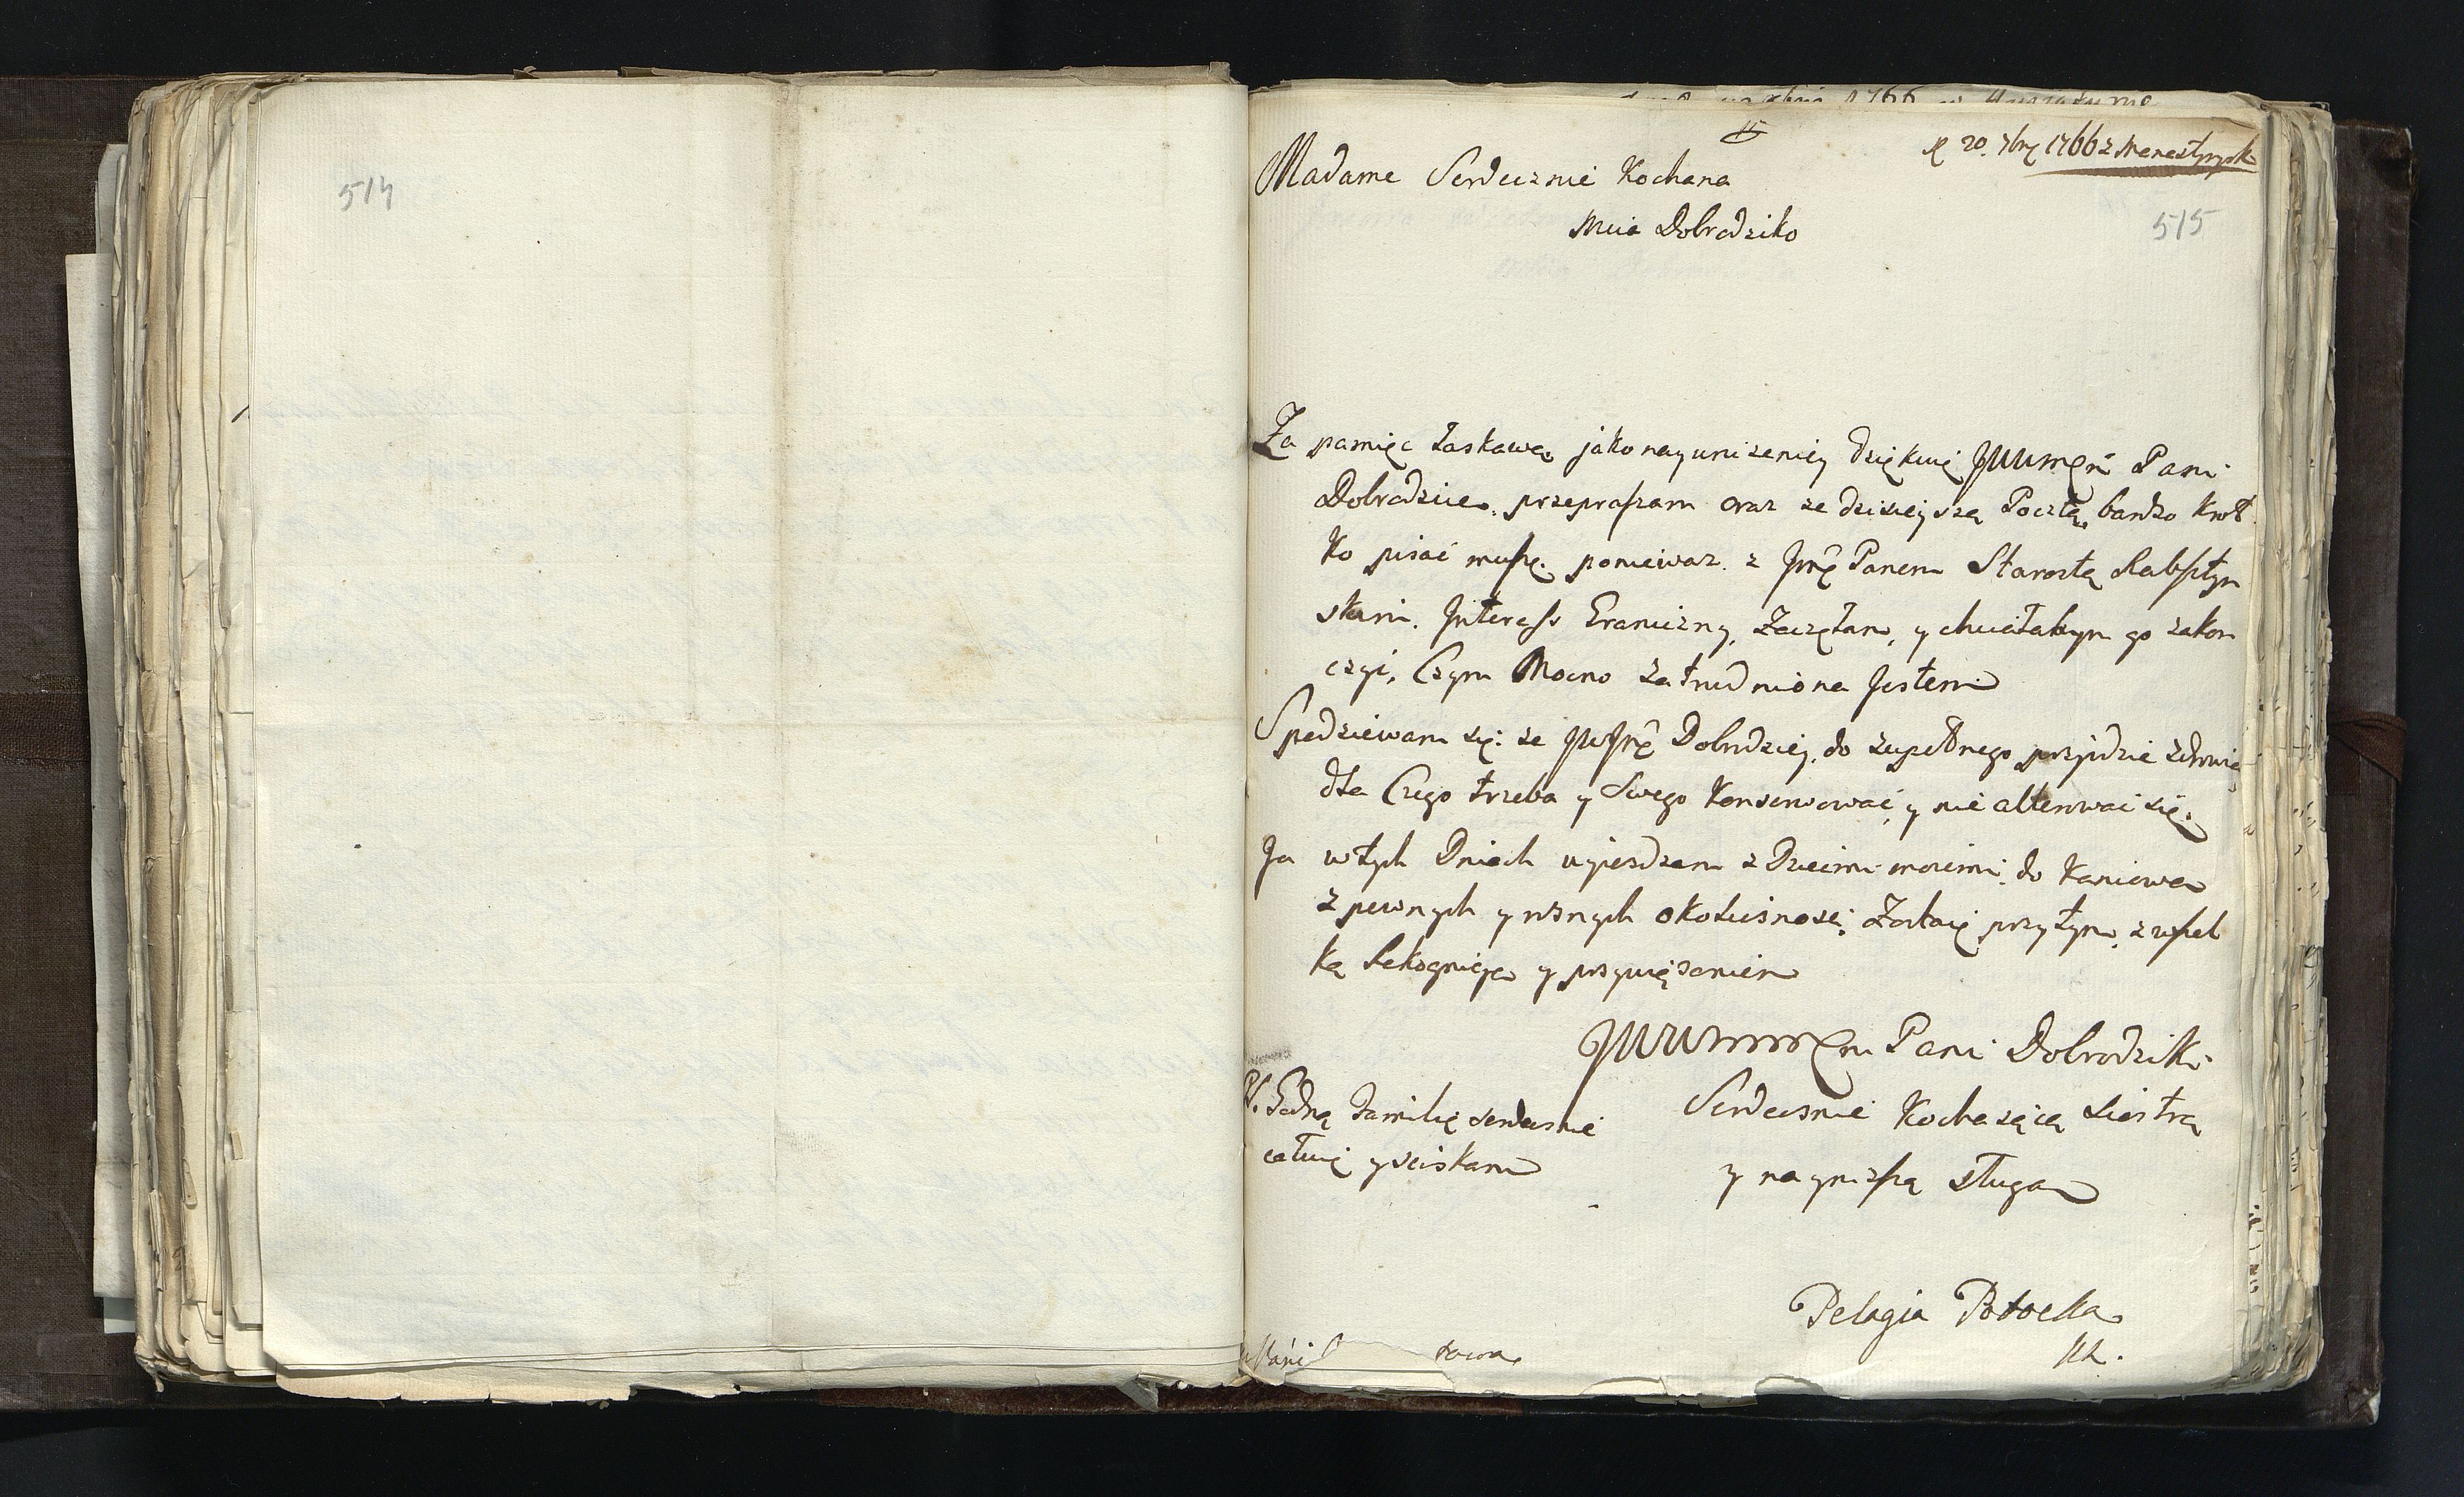 514
20. 7bry 1766 z Monastyrysk
Madame Serdecznie Kochana
Mcia Dobrodziko
515
Za pamięc Łaskawą, jako nayunizeniey dziękuię JWWMę Pani
Dobrodzice, przepraszam oraz ze dzisieyszą Pocztą, bardzo Krot
Ko pisać muszę. poniewaz z Jmę Panem Starostą Rabsztyn
skim. Interess Graniczny, Zaczęłam, y chciałabym go zakon
czyć, Czym Mocno zatrudniona Jestem
Spodziewam się: ze JWJmę Dobrodziey, do zupełnego przyidzie zdrowia
dla Czego trzeba y Swego Konserwować, y nie alterować się.
Ja w tych Dniach wyiezdzam z Dziećmi moiemi, do Kaniowa
z pewnych y roznych okolicznosci, Zostaię przytym, z wszel
Ką Rekognicyą y przywiązaniem
Pani Dobrodziki
Serdecznie Kochaiącą Siostrą
y nayniższą sługą
PS. Godną Familię serdecznie
całuię y sciskam
Pelagia Potocka